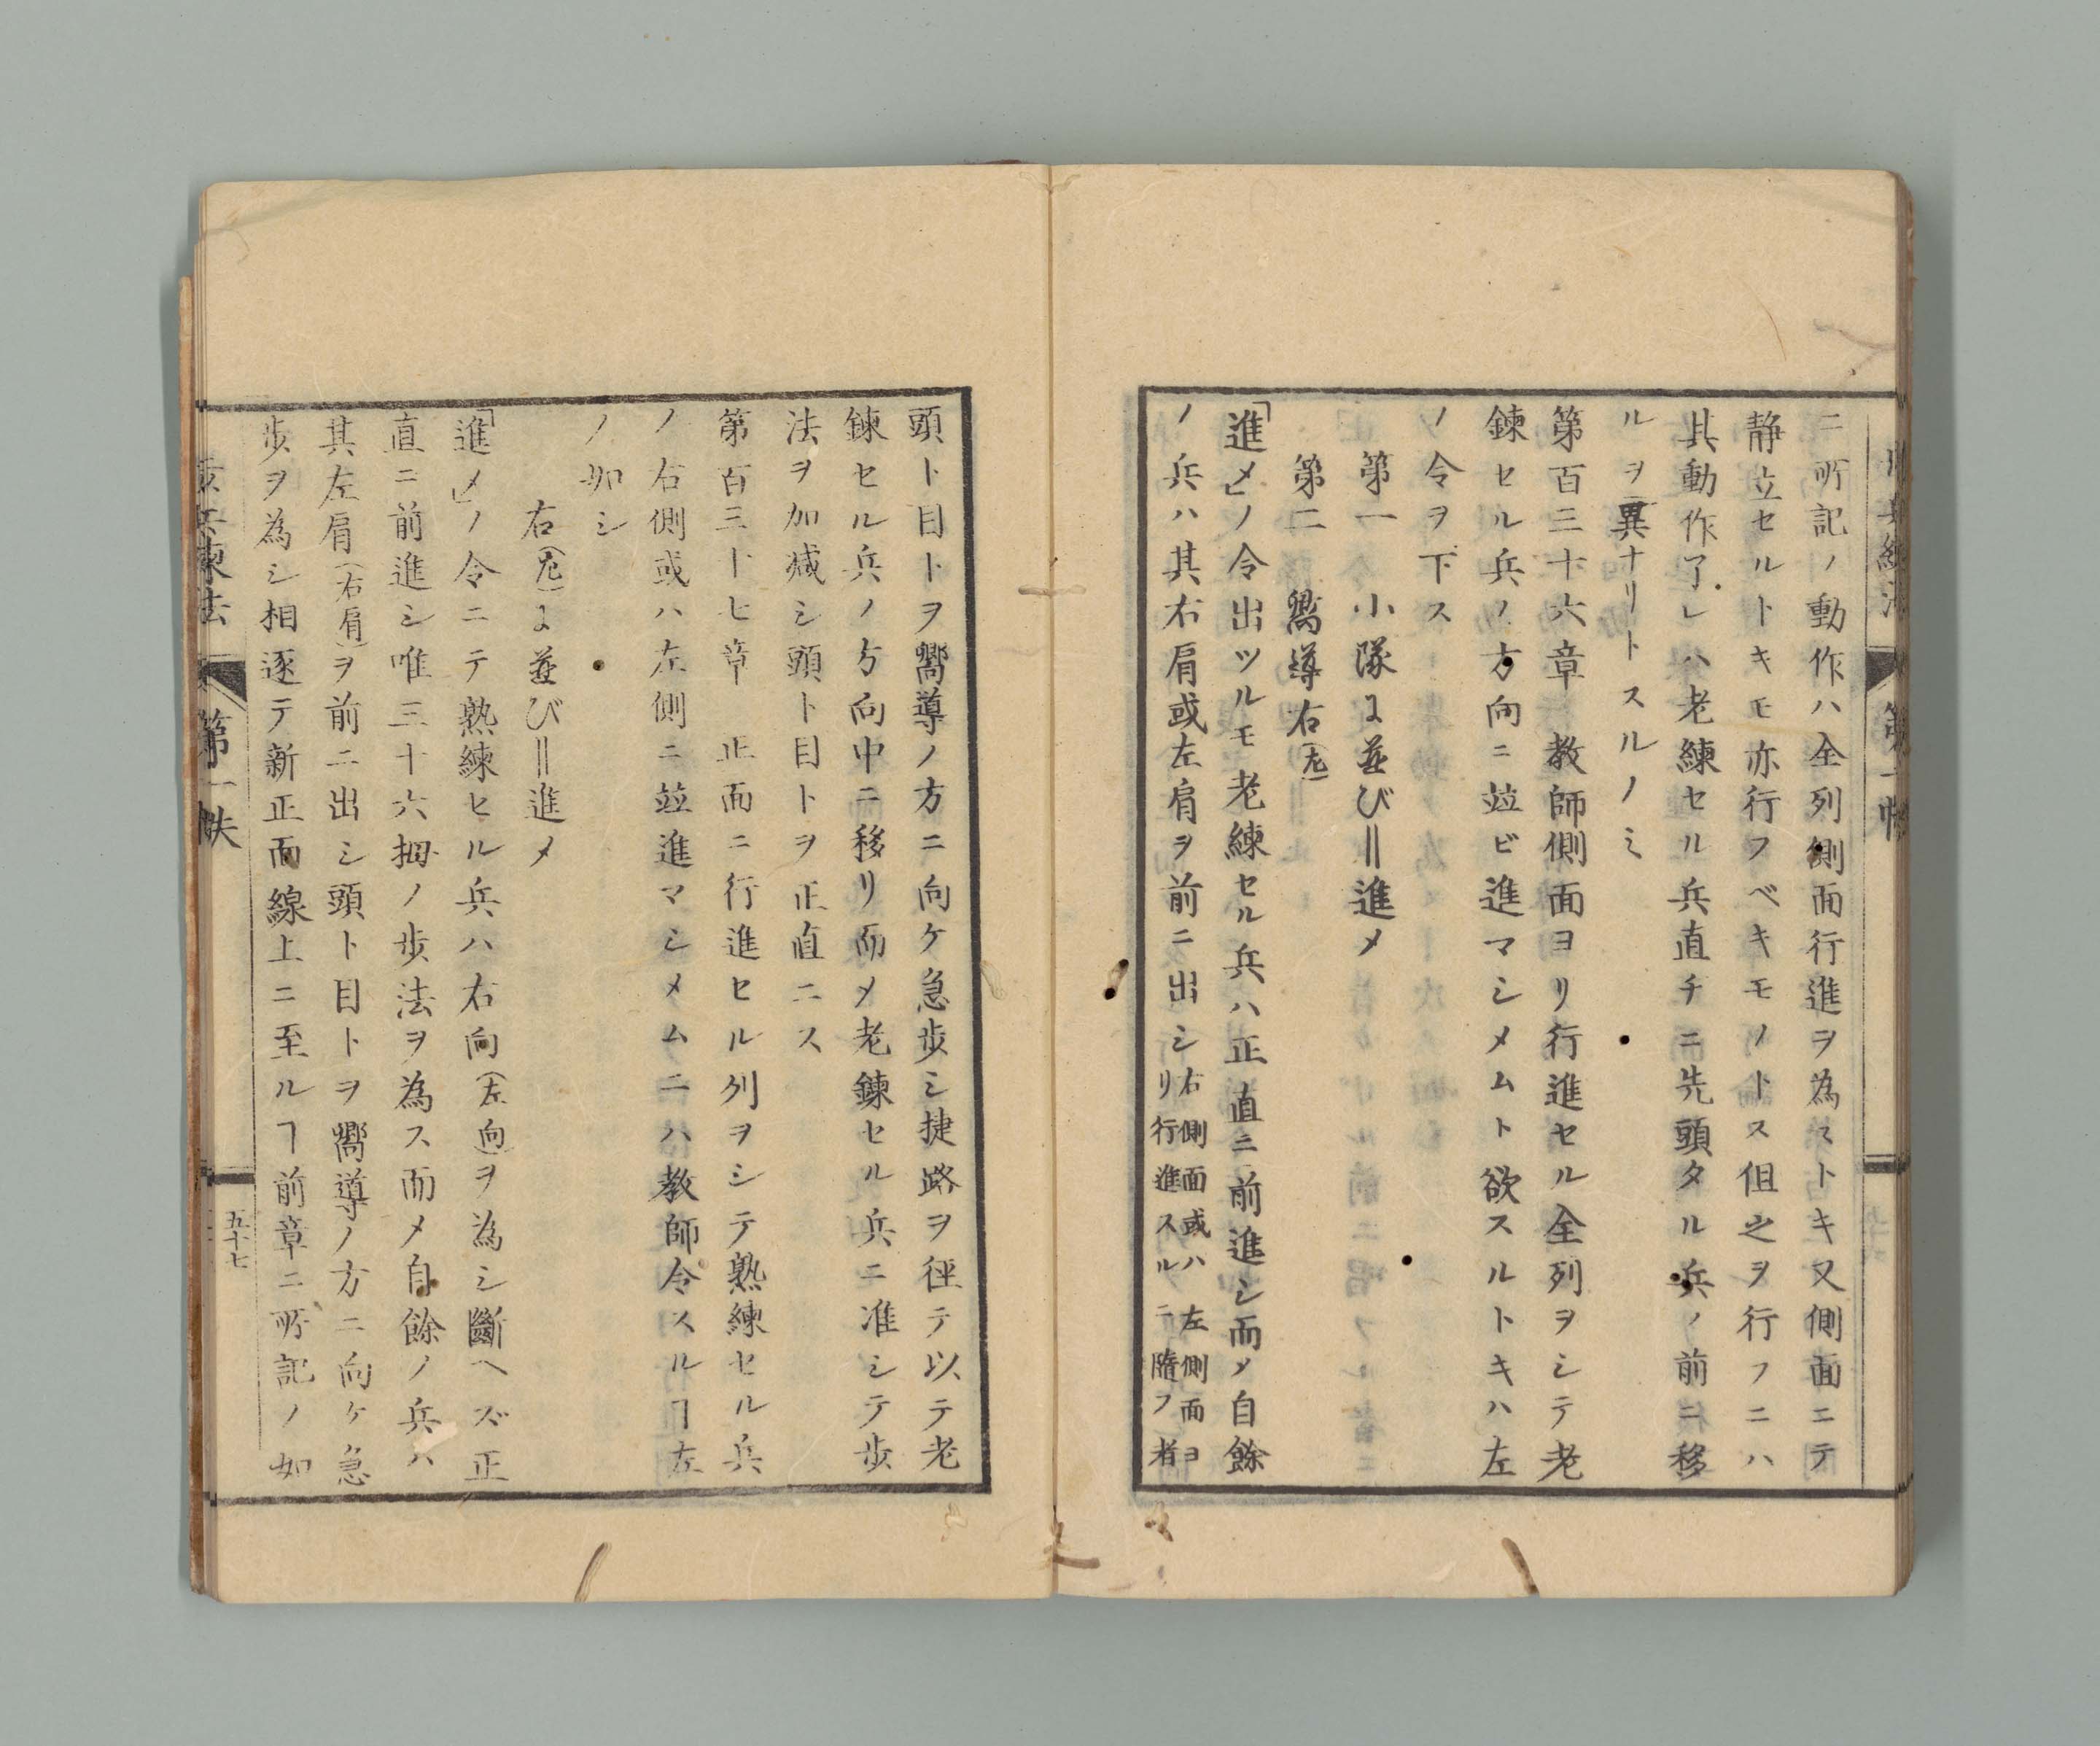 ニ所記ノ動作ハ全列側面行進ヲ為ストキ又側面ニテ
静立セルトキモ亦行フベキモノトス但之ヲ行フニハ
其動作了レハ老練セル兵直チニ先頭タル兵ノ前ニ移
ルヲ異ナリトスルノミ
第百三十六章 教師側面ヨリ行進セル全列ヲシテ老
錬セル兵ノ方向ニ竝ビ進マシメムト欲スルトキハ左
ノ令ヲ下ス
第一 小隊に並び‖進メ
第二 嚮導右(左)
「進メ」ノ令出ツルモ老練セル兵ハ正直ニ前進シ而メ自餘
ノ兵ハ其右肩或左肩ヲ前ニ出シ右側面或ハ左側面ヨ
リ行進スルニ隨フ者
頭ト目トヲ嚮導ノ方ニ向ケ急歩シ捷路ヲ徑テ以テ老
錬セル兵ノ方向中ニ移リ而メ老錬セル兵ニ准シテ歩
法ヲ加减シ頭ト目トヲ正直ニス
第百三十七章 正面ニ行進セル列ヲシテ熟練セル兵
ノ右側或ハ左側ニ竝進マシメムニハ教師令スルヿ左
ノ如シ
右(左)に並び‖進メ
「進メ」ノ令ニテ熟練セル兵ハ右向(左向)ヲ為シ斷ヘズ正
直ニ前進シ唯三十六拇ノ歩法ヲ為ス而メ自餘ノ兵ハ
其左肩(右肩)ヲ前ニ出シ頭ト目トヲ嚮導ノ方ニ向ケ急
歩ヲ為シ相逐テ新正面線上ニ至ルヿ前章ニ所記ノ如
歩兵練法 第一帙
五十七